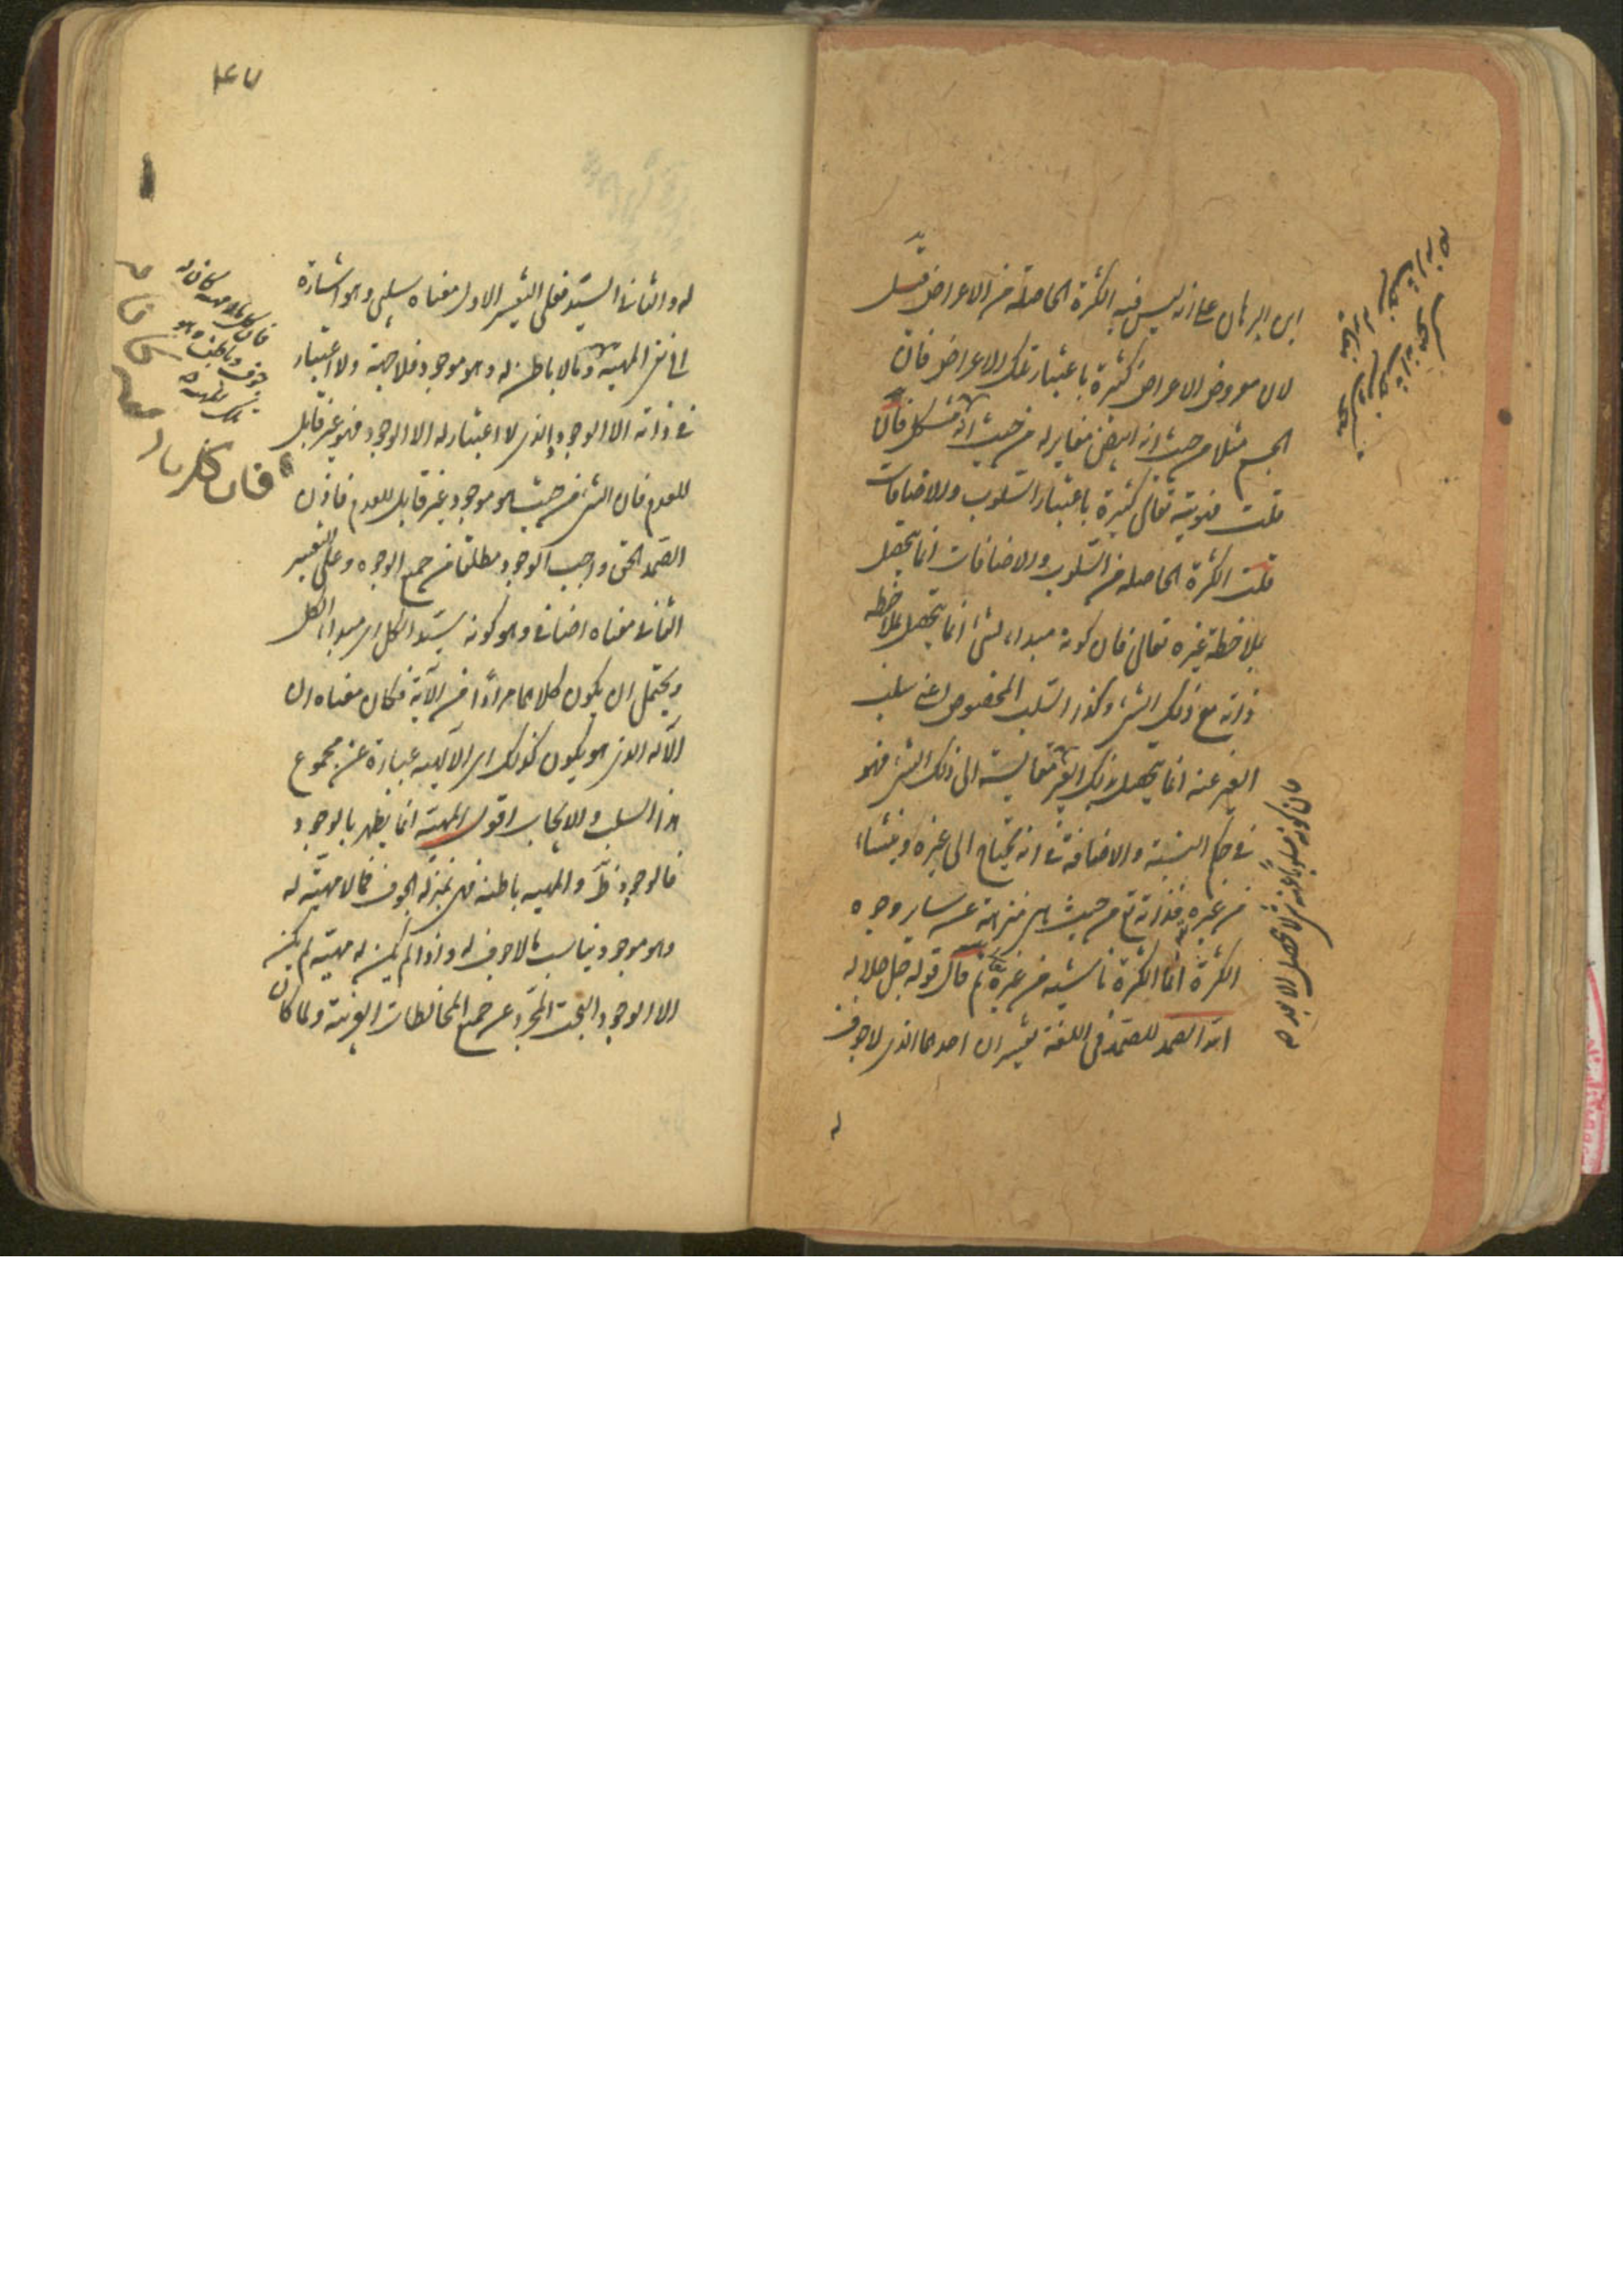 اين البرهان على انه ليس فيه الكثرة الحاصلة من الاعراض قيل
لان معروض الاعراض كثيرة باعتبار تلك الاعراض فان
الجسم مثلا من حيث انه ابيض مغاير له من حيث انه مشكل فان
قلت فهويته تعالى كثيرة باعتبار السلوب والاضافات
قلت الكثرة الحاصله من السلوب والاضافات انما تحصل
بملاحظة غيره تعالى فان كونه مبداء لشئ انما تحصل بملاحظه
ذاته مع ذلك الشئ وكذا السلب المخصوص اعنى سلب
الغير عنه انما تحصل لذلك الغير مقايسته الى ذلك الشئ فهو
فى حكم النسبة والاضافة فى انه يحتاج الى غيره و ينشاء
من غيره فذاته تع من حيث هى منزهة عن ساير وجوه
الكثرة انما الكثرة ناشيه من غيره ثم قال قوله جل جلاله
الله الصمد للصمد فى اللغة تفسيران احدهما الذى لا جوف
له
۴۷
له والثانى السيد فعلى التفسير الاول معناه سلبى وهو اشارة
الى نفى المهية و مالا باطن له وهو موجود فلا جهة ولا اعتبار
فى ذاته الا الوجود والذى لا اعتبار له الا الوجود فهو غير قابل
للعدم فان الشئ من حيث هو موجود غير قابل للعدم فاذن
الصمد الحق واجب الوجود مطلقا من جميع الوجوه وعلى التفسير
الثانى معناه اضافى وهو كونه سيدا للكل اى مبداء الكل
ويحتمل ان يكون كلاهما مرادا من الآية فكان معناه ان
الآله الذى هو يكون كذلك اى الآلهيه عبارة عن مجموع
هذا السلب والايجاب اقول المهية انما يظهر بالوجود
فالوجود ظ والمهيه باطنه فهى بمنزله الجوف فمالا مهية له
وهو موجود يناسب مالا جوف له واذا لم يكن له مهيته لم يكن
الا الوجود البحت المجرد عن جميع المخالطات الغريبة ولما كان